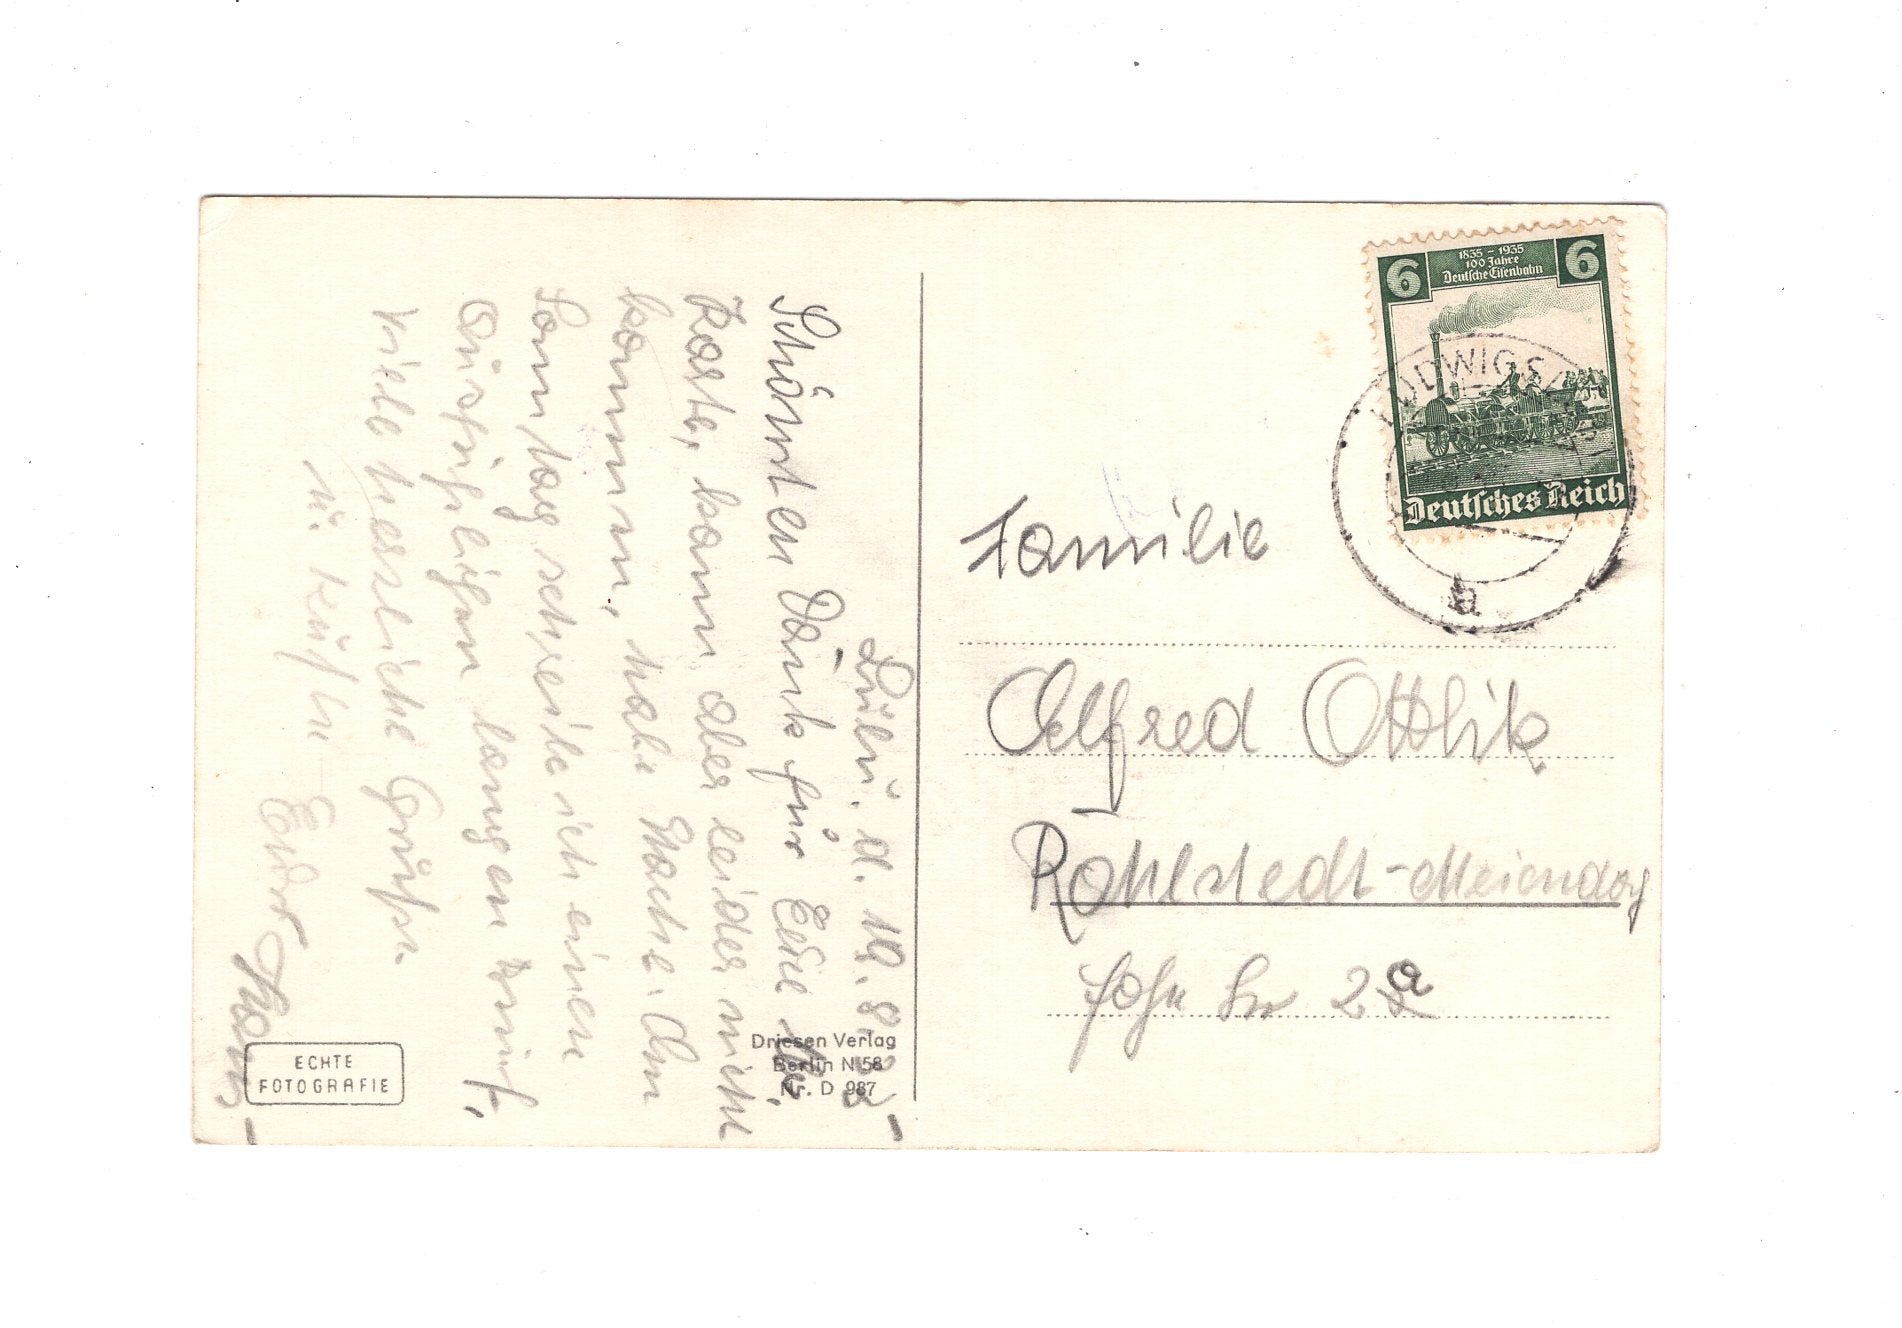 Lulu. d. 19. 8. 35
Schönsten Dank für Eure
Karte, kann aber leider nicht
kommen, habe Wache. Am
Sonntag schreibe ich einen
ausführlichen langen Brief.
Viele herzliche Grüße
u. Küsse
Euer
Hans
Familie
Alfred Ottlik
Rahlstedt-Meiendorf
2a
6 1835-1935 6
100 Jahre
Deutsche Eisenbahn
Deutsches Reich
LUDWIGSL
a
Driesen Verlag
Berlin N 58
Nr. D 987
ECHTE
FOTOGRAFIE